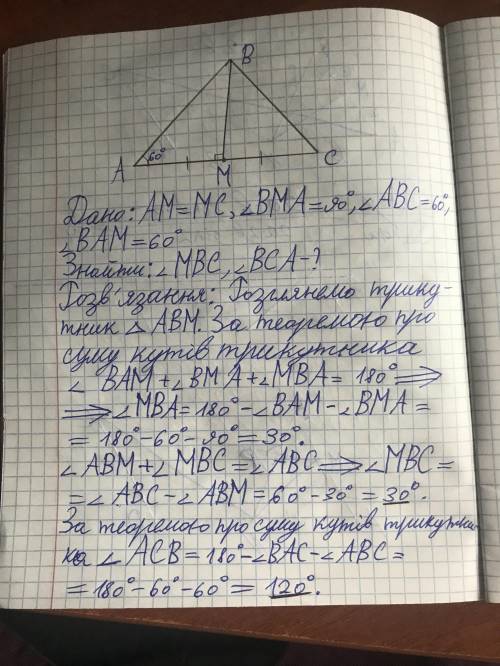 B
A 60° M C
Дано: AM=MC, ∠BMA=90°, ∠ABC=60°,
∠BAM=60°
Знайти: ∠MBC, ∠BCA-?
Розв'язання: Розглянемо трику-
тник △ABM. За теоремою про
суму кутів трикутника
∠BAM+∠BMA+∠MBA=180°⟹
⟹∠MBA=180°-∠BAM-∠BMA=
=180°-60°-90°=30°.
∠ABM+∠MBC=∠ABC⟹∠MBC=
=∠ABC-∠ABM=60°-30°=30°.
За теоремою про суму кутів трикутни-
ка ∠ACB=180°-∠BAC-∠ABC=
=180°-60°-60°=120°.